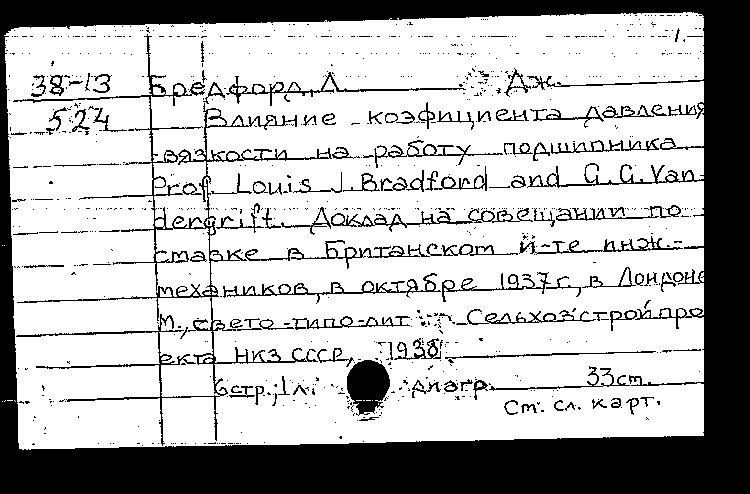 1.
38-13 Бредфорд, Л. Дж.
524 Влияние коэфициента давления
-вязкости на работу подшипника
Prof. Louis J. Bradford and G. G. Van-
dengrift. Доклад на совещании по
смазке в Британском й-те инж.-
механиков, в октябре 1937 г., в Лондоне
М., свето-типо-лит Сельхозстройпро
екта НКЗ СССР, 1938.
6 стр.; 1 л. диагр. 33 ст.
См. сл. карт.